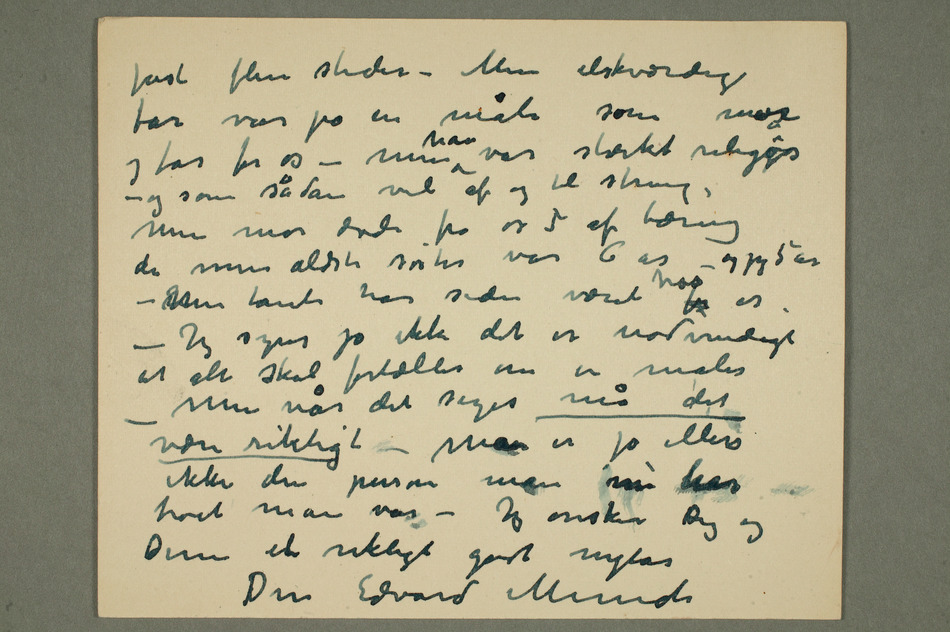 just flere steder – Min elskværdige
far var jo en måte som mor
og far for os – men han var stærkt religiøs
– og som sådan vel af og til streng,
Min mor døde fra os 5 af tæring
da min ældste søster var 6 år – og jeg 5 år
– Min tante har siden været hos os.
– Jeg synes jo ikke det er nødvendigt
at alt skal fortælles om en maler
– Men når det siges må det
være riktigt – Man er jo ellers
ikke den person man nu har
troet man var – Jeg ønsker Dig og
Dine et rikligt godt nytår
Din Edvard Munch